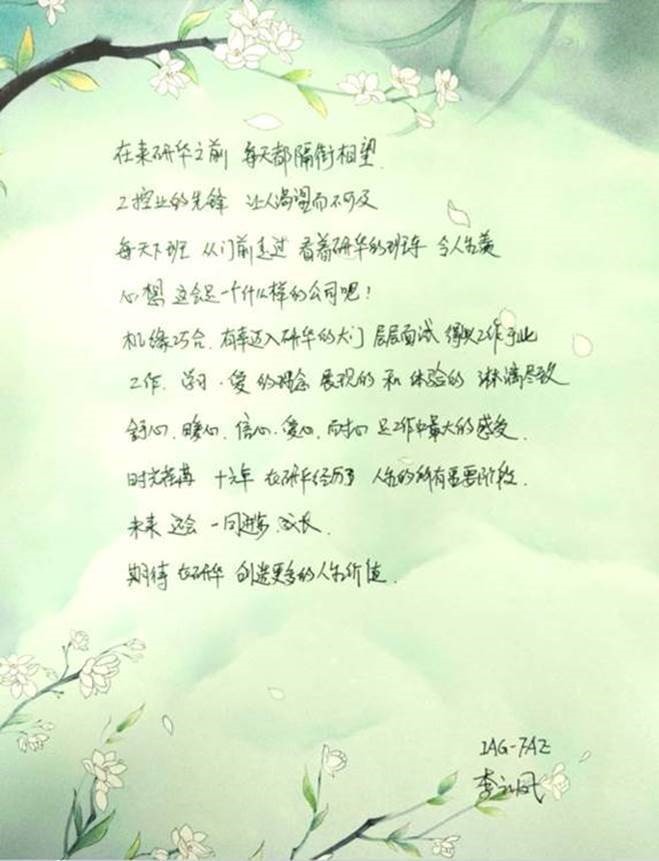 在来研华之前 每天都隔街相望
工控业的先锋 让人渴望而不可及
每天下班 从门前走过 看着研华的班车 令人生羡
心想 这会是一个什么样的公司吧！
机缘巧合，有幸迈入研华的大门 层层面试 得以工作于此
工作、学习、爱的理念 展现的和体验的 淋漓尽致
舒心、暖心、信心、爱心、耐心 是工作中最大的感受.
时光荏苒 十六年 在研华经历了 人生的所有重要阶段.
未来 还会 一同进步、成长.
期待 在研华 创造更多的人生价值.
IAG-FAZ
李 凤